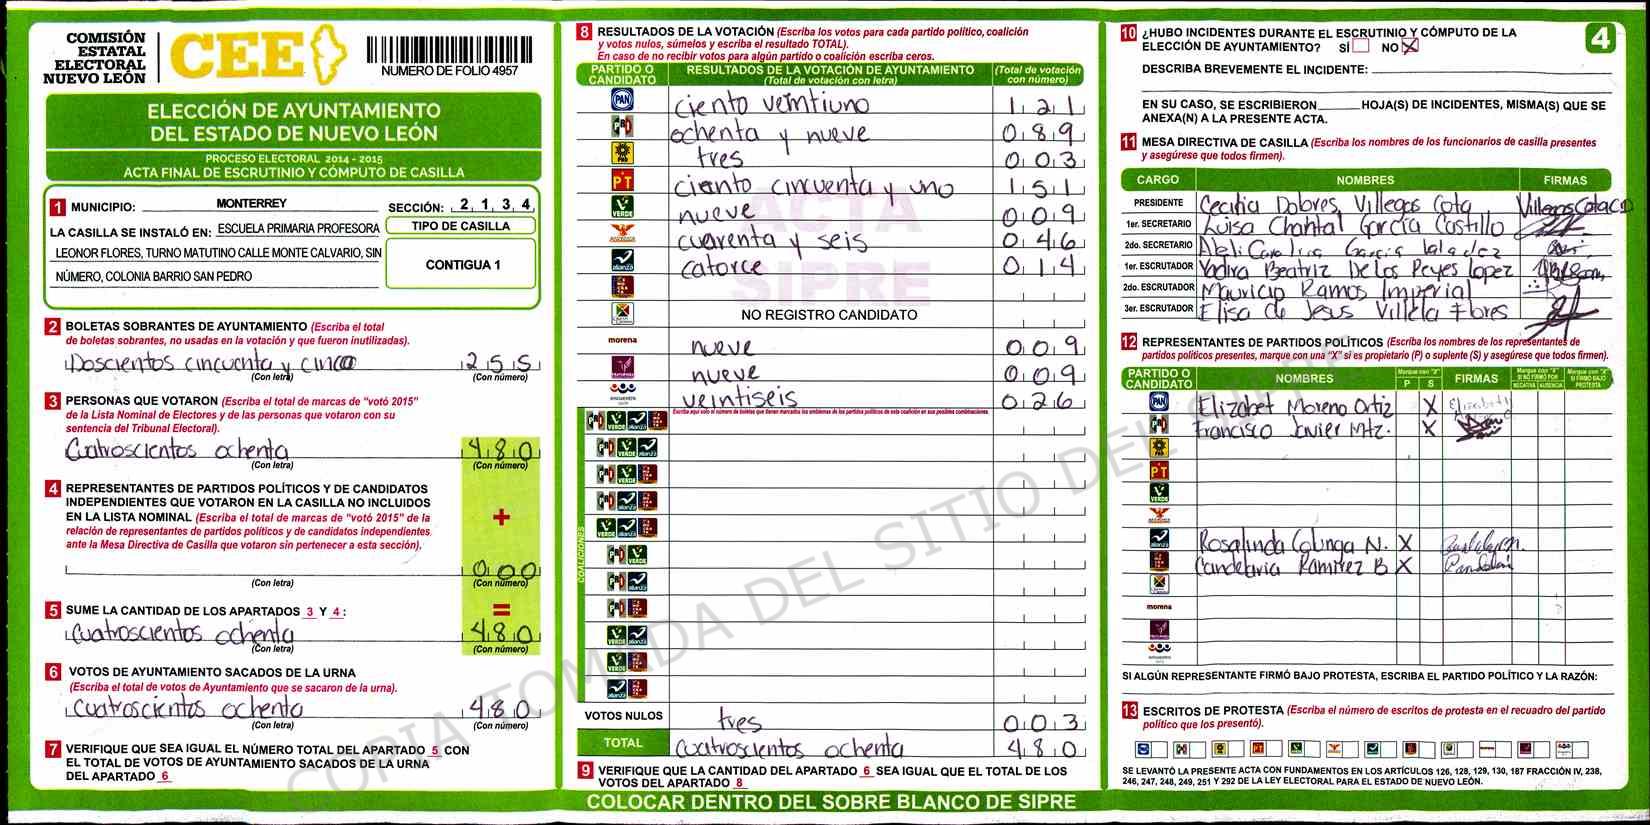 COMISIÓN
ESTATAL
ELECTORAL
NUEVO LEÓN
CEE
NUMERO DE FOLIO 4957
ELECCIÓN DE AYUNTAMIENTO
DEL ESTADO DE NUEVO LEÓN
PROCESO ELECTORAL 2014 - 2015
ACTA FINAL DE ESCRUTINIO Y CÓMPUTO DE CASILLA
1 MUNICIPIO: MONTERREY SECCIÓN: 2 1 3 4
LA CASILLA SE INSTALÓ EN: ESCUELA PRIMARIA PROFESORA
LEONOR FLORES, TURNO MATUTINO CALLE MONTE CALVARIO, SIN
NÚMERO, COLONIA BARRIO SAN PEDRO
TIPO DE CASILLA
CONTIGUA 1
2 BOLETAS SOBRANTES DE AYUNTAMIENTO (Escriba el total
de boletas sobrantes, no usadas en la votación y que fueron inutilizadas).
Doscientos cincuenta y cinco 2 5 5
(Con letra) (Con número)
3 PERSONAS QUE VOTARON (Escriba el total de marcas de "votó 2015"
de la Lista Nominal de Electores y de las personas que votaron con su
sentencia del Tribunal Electoral).
Cuatroscientos ochenta 4 8 0
(Con letra) (Con número)
4 REPRESENTANTES DE PARTIDOS POLÍTICOS Y DE CANDIDATOS
INDEPENDIENTES QUE VOTARON EN LA CASILLA NO INCLUIDOS
EN LA LISTA NOMINAL (Escriba el total de marcas de "votó 2015" de la
relación de representantes de partidos políticos y de candidatos independientes
ante la Mesa Directiva de Casilla que votaron sin pertenecer a esta sección).
+
0 0 0
(Con letra) (Con número)
5 SUME LA CANTIDAD DE LOS APARTADOS 3 Y 4 : =
Cuatroscientos ochenta 4 8 0
(Con letra) (Con número)
6 VOTOS DE AYUNTAMIENTO SACADOS DE LA URNA
(Escriba el total de votos de Ayuntamiento que se sacaron de la urna).
Cuatroscientos ochenta 4 8 0
(Con letra) (Con número)
7 VERIFIQUE QUE SEA IGUAL EL NÚMERO TOTAL DEL APARTADO 5 CON
EL TOTAL DE VOTOS DE AYUNTAMIENTO SACADOS DE LA URNA
DEL APARTADO 6
8 RESULTADOS DE LA VOTACIÓN (Escriba los votos para cada partido político, coalición
y votos nulos, súmelos y escriba el resultado TOTAL).
En caso de no recibir votos para algún partido o coalición escriba ceros.
PARTIDO O CANDIDATO RESULTADOS DE LA VOTACIÓN DE AYUNTAMIENTO (Total de votación con letra) (Total de votación con número)
PAN ciento veintiuno 1 2 1
PRI ochenta y nueve 0 8 9
PRD tres 0 0 3
PT ciento cincuenta y uno 1 5 1
VERDE nueve 0 0 9
cuarenta y seis 0 4 6
alianza catorce 0 1 4
ACTA
SIPRE
NO REGISTRO CANDIDATO
morena nueve 0 0 9
nueve 0 0 9
encuentro veintiseis 0 2 6
Escriba aquí solo el número de boletas que tienen marcados los emblemas de los partidos políticos de esta coalición en sus posibles combinaciones.
COALICIONES
VOTOS NULOS tres 0 0 3
TOTAL Cuatroscientos ochenta 4 8 0
9 VERIFIQUE QUE LA CANTIDAD DEL APARTADO 6 SEA IGUAL QUE EL TOTAL DE LOS
VOTOS DEL APARTADO 8
COLOCAR DENTRO DEL SOBRE BLANCO DE SIPRE
10 ¿HUBO INCIDENTES DURANTE EL ESCRUTINIO Y CÓMPUTO DE LA
ELECCIÓN DE AYUNTAMIENTO? SÍ NO X
4
DESCRIBA BREVEMENTE EL INCIDENTE:
EN SU CASO, SE ESCRIBIERON HOJA(S) DE INCIDENTES, MISMA(S) QUE SE
ANEXA(N) A LA PRESENTE ACTA.
11 MESA DIRECTIVA DE CASILLA (Escriba los nombres de los funcionarios de casilla presentes
y asegúrese que todos firmen).
CARGO NOMBRES FIRMAS
PRESIDENTE Cecilia Dolores Villegas Cota
1er. SECRETARIO Luisa Chantal García Castillo
2do. SECRETARIO
1er. ESCRUTADOR Yadira Beatriz De Los Reyes Lopez
2do. ESCRUTADOR Mauricio Ramos Imperial
3er. ESCRUTADOR Elisa de Jesus Villela Flores
12 REPRESENTANTES DE PARTIDOS POLÍTICOS (Escriba los nombres de los representantes de
partidos políticos presentes, marque con una "X" si es propietario (P) o suplente (S) y asegúrese que todos firmen).
PARTIDO O CANDIDATO NOMBRES Marque con "X" P S FIRMAS Marque con "X" SI NO FIRMÓ POR NEGATIVA AUSENCIA Marque con "X" SI FIRMÓ BAJO PROTESTA
PAN Elizabet Moreno Ortiz X
PRI Francisco Javier Mtz. X
PRD
PT
VERDE
alianza Rosalinda Colunga N. X
Candelaria Ramirez B X
morena
SI ALGÚN REPRESENTANTE FIRMÓ BAJO PROTESTA, ESCRIBA EL PARTIDO POLÍTICO Y LA RAZÓN:
13 ESCRITOS DE PROTESTA (Escriba el número de escritos de protesta en el recuadro del partido
político que los presentó).
SE LEVANTÓ LA PRESENTE ACTA CON FUNDAMENTOS EN LOS ARTÍCULOS 126, 128, 129, 130, 187 FRACCIÓN IV, 238,
246, 247, 248, 249, 251 Y 292 DE LA LEY ELECTORAL PARA EL ESTADO DE NUEVO LEÓN.
COPIA TOMADA DEL SITIO DEL SIPRE